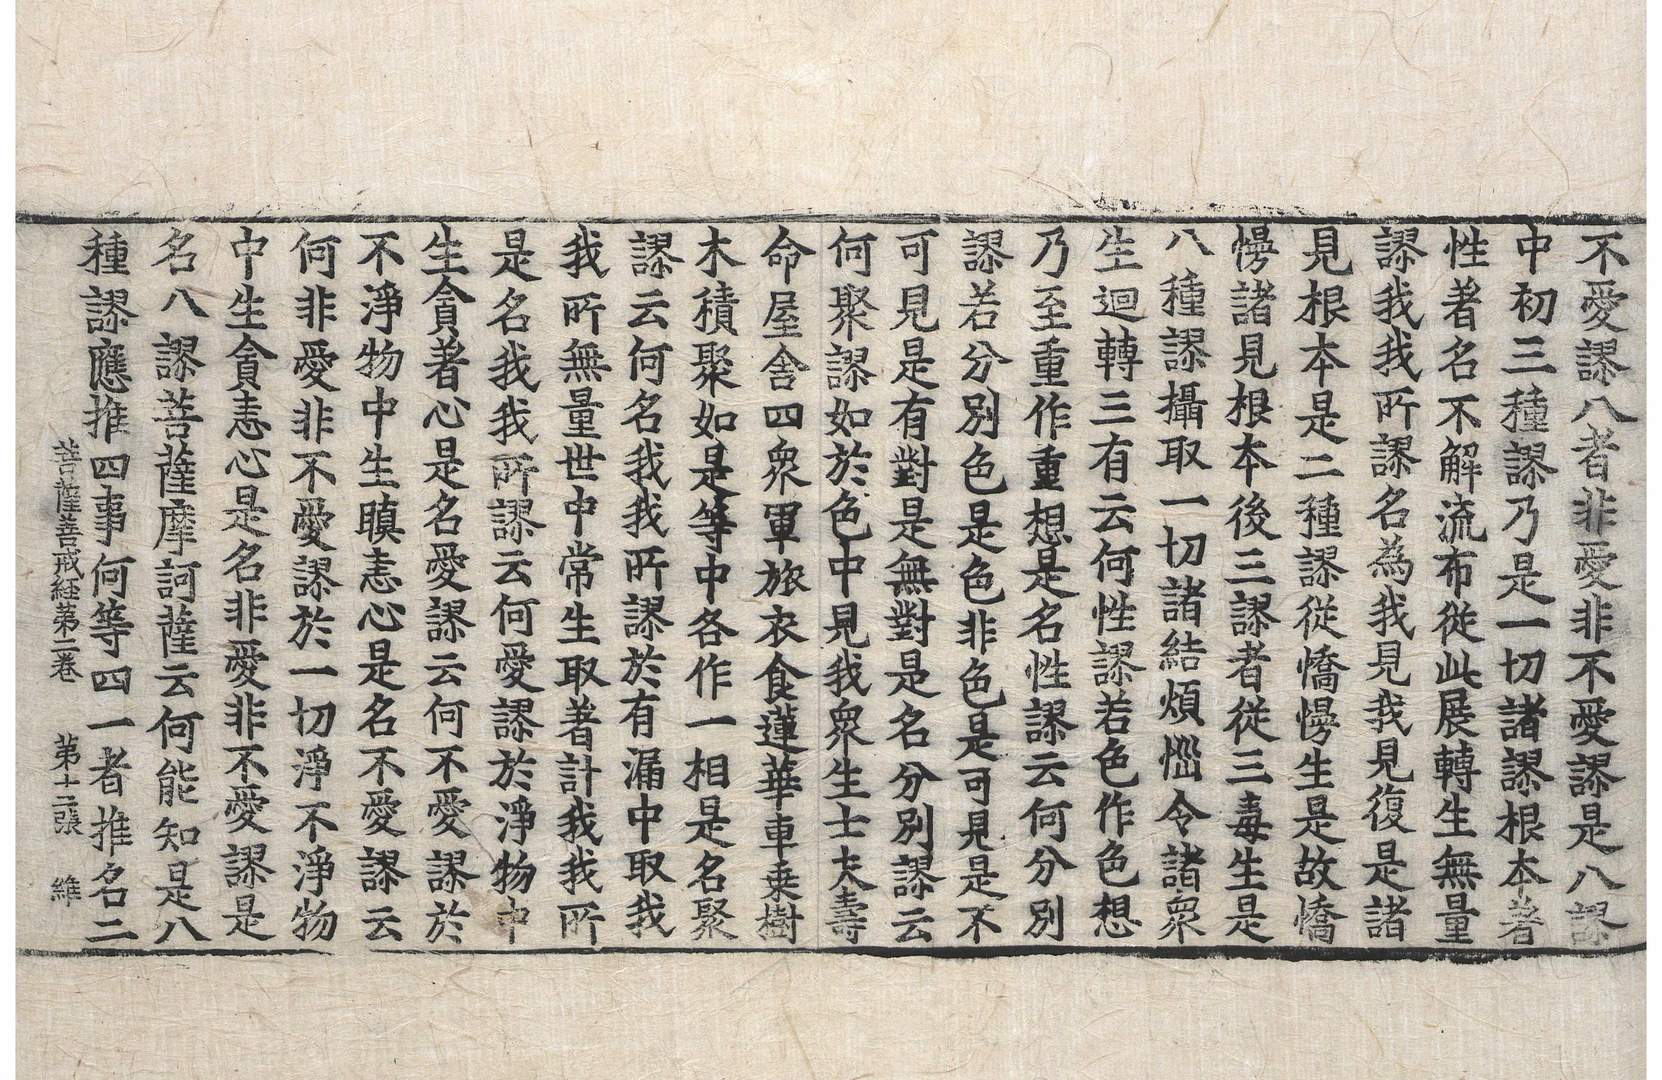 不愛謬八者非愛非不愛謬是八謬
中初三種謬乃是一切諸謬根本著
性著名不解流布從此展轉生無量
謬我我所謬名為我見我見復是諸
見根本是二種謬從憍慢生是故憍
慢諸見根本後三謬者從三毒生是
八種謬攝取一切諸結煩惱令諸衆
生迴轉三有云何性謬若色作色想
乃至重作重想是名性謬云何分別
謬若分別色是色非色是可見是不
可見是有對是無對是名分別謬云
何聚謬如於色中見我衆生士夫壽
命屋舍四衆軍旅衣食蓮華車乗樹
木積聚如是等中各作一相是名聚
謬云何名我我所謬於有漏中取我
我所無量世中常生取著計我我所
是名我我所謬云何愛謬於淨物中
生貪著心是名愛謬云何不愛謬於
不淨物中生瞋恚心是名不愛謬云
何非愛非不愛謬於一切淨不淨物
中生貪恚心是名非愛非不愛謬是
名八謬菩薩摩訶薩云何能知是八
種謬應推四事何等四一者推名二
菩薩善戒経第二卷 第十二張 維